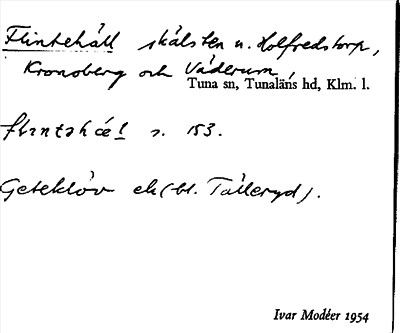 Flintehäll skälsten n. Holfredstorp,
Kronoberg och Väderum
Tuna sn, Tunaläns hd, Klm. l.
s. 153.
Geteklöv ek (bl. Tälleryd).
Ivar Modéer 1954